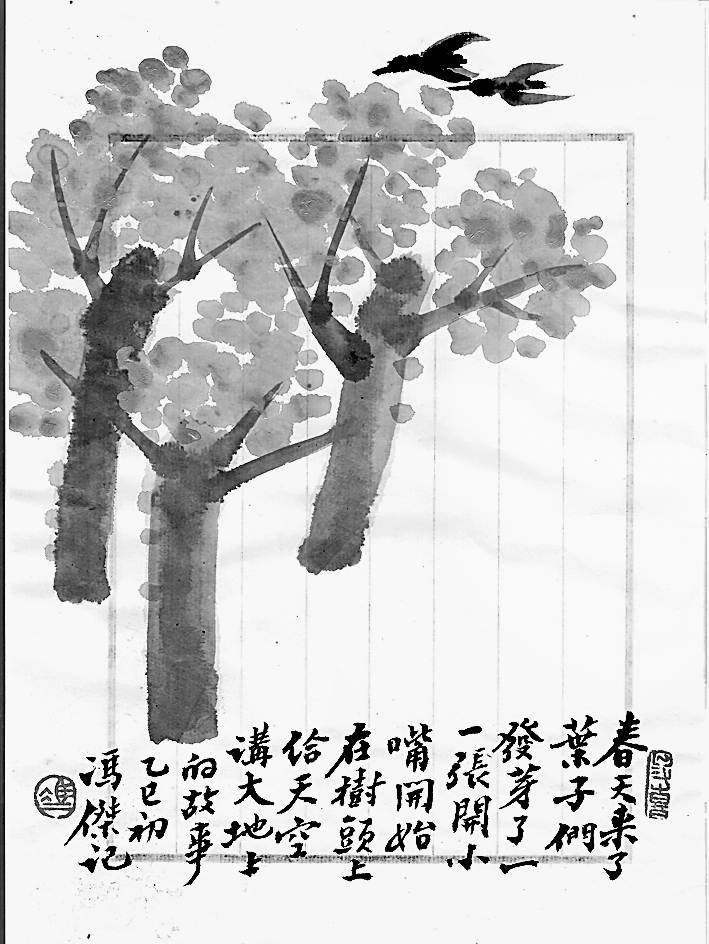 春天来了
葉子們
發芽了一
一張開小
嘴開始
在樹頭上
给天空
講大地上
的故事
乙巳初
馮傑記